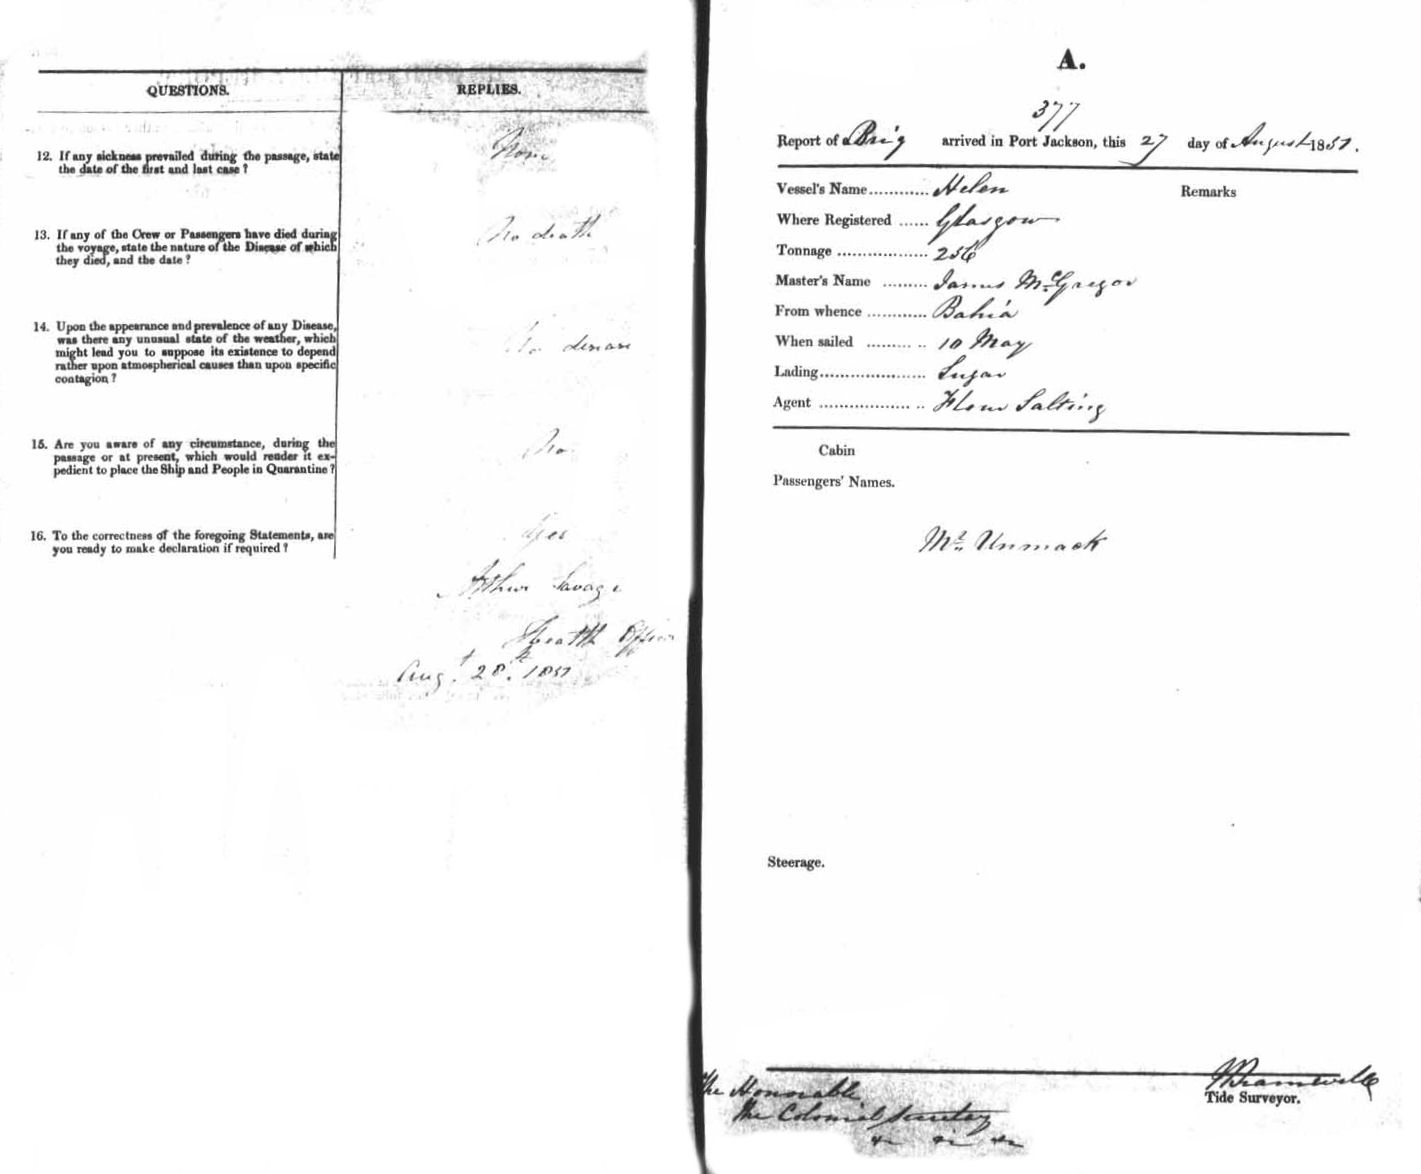 QUESTIONS.
REPLIES.
12. If any sickness prevailed during the passage, state
the date of the first and last case ?
None
13. If any of the Crew or Passengers have died during
the voyage, state the nature of the Disease of which
they died, and the date ?
No death
14. Upon the appearance and prevalence of any Disease,
was there any unusual state of the weather, which
might lead you to suppose its existence to depend
rather upon atmospherical causes than upon specific
contagion ?
No disease
15. Are you aware of any circumstance, during the
passage or at present, which would render it ex-
pedient to place the Ship and People in Quarantine ?
No
16. To the correctness of the foregoing Statements, are
you ready to make declaration if required ?
Yes
Arthur Savage
Health Officer
Augt. 28th. 1851
A.
377
Report of Brig arrived in Port Jackson, this 27 day of August 1851.
Vessel's Name............ Helen
Remarks
Where Registered ...... Glasgow
Tonnage .................. 256
Master's Name ......... James McGregor
From whence ............ Bahia
When sailed ......... .. 10 May
Lading..................... Sugar
Agent .................. .. Flower Salting
Cabin
Passengers' Names.
Mr. Unmack
Steerage.
The Honorable
The Colonial Secretary
&c &c &c
Tide Surveyor.